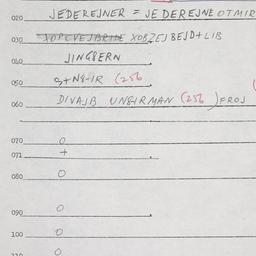 020 JEDEREJNER = JE DEREJNE OTMIR
030 XOPCVEJBRIHE XOBZEJ BEJD+LIB
040 JINGBERN
050 S+NG-IR (256
060 DIVAJB UNGIRMAN (256) FROJ
070 O
071 +
080 O
090 O
100 O
110 O